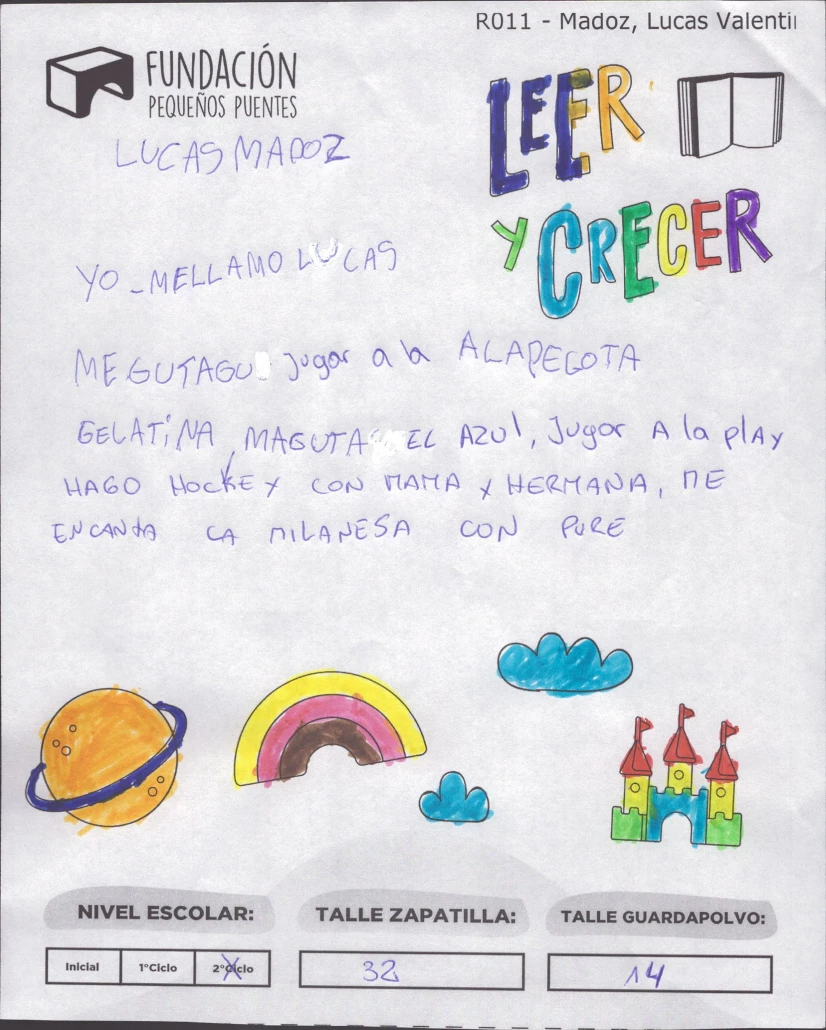 R011 - Madoz, Lucas Valenti
FUNDACIÓN
PEQUEÑOS PUENTES
LEER
Y CRECER
LUCAS MADOZ
YO - MELLAMO LUCAS
ME GUTAGU jugar a la ALAPEGOTA
GELATINA, MAGUTA EL AZUL, JUGAR A la PLAY
HAGO HOCKEY CON MAMA Y HERMANA, ME
ENCANTA LA MILANESA CON PURE
NIVEL ESCOLAR:
Inicial 1ºCiclo 2ºCiclo
TALLE ZAPATILLA:
32
TALLE GUARDAPOLVO:
14